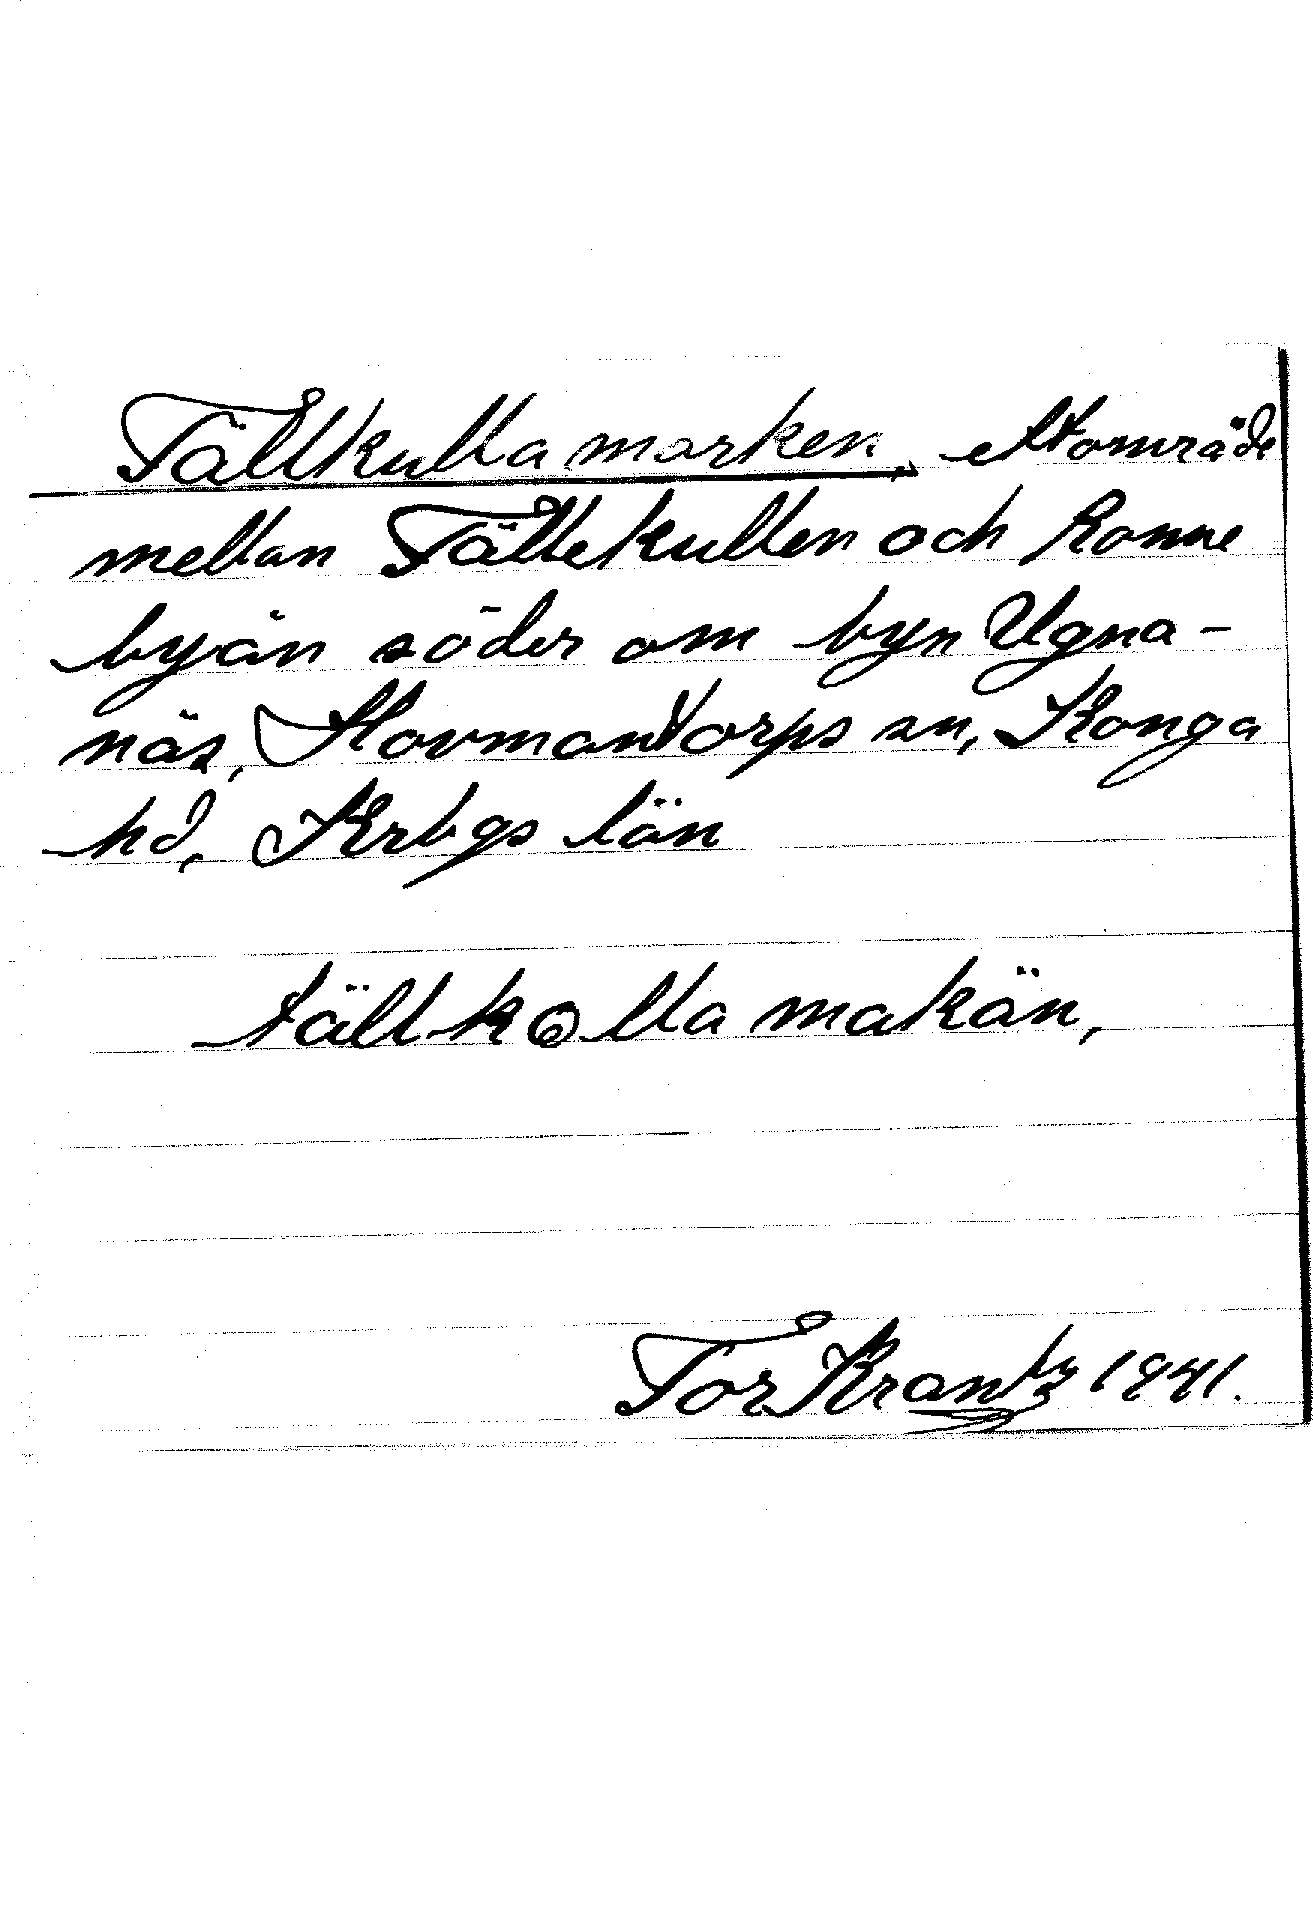 Tällkullamarken, ett område
mellan Tällekullen och Ronne
byån söder om byn Ugna-
näs, Hovmantorps sn, Konga
hd, Krbgs län
tällkollamakän,
Tor Krantz 1941.